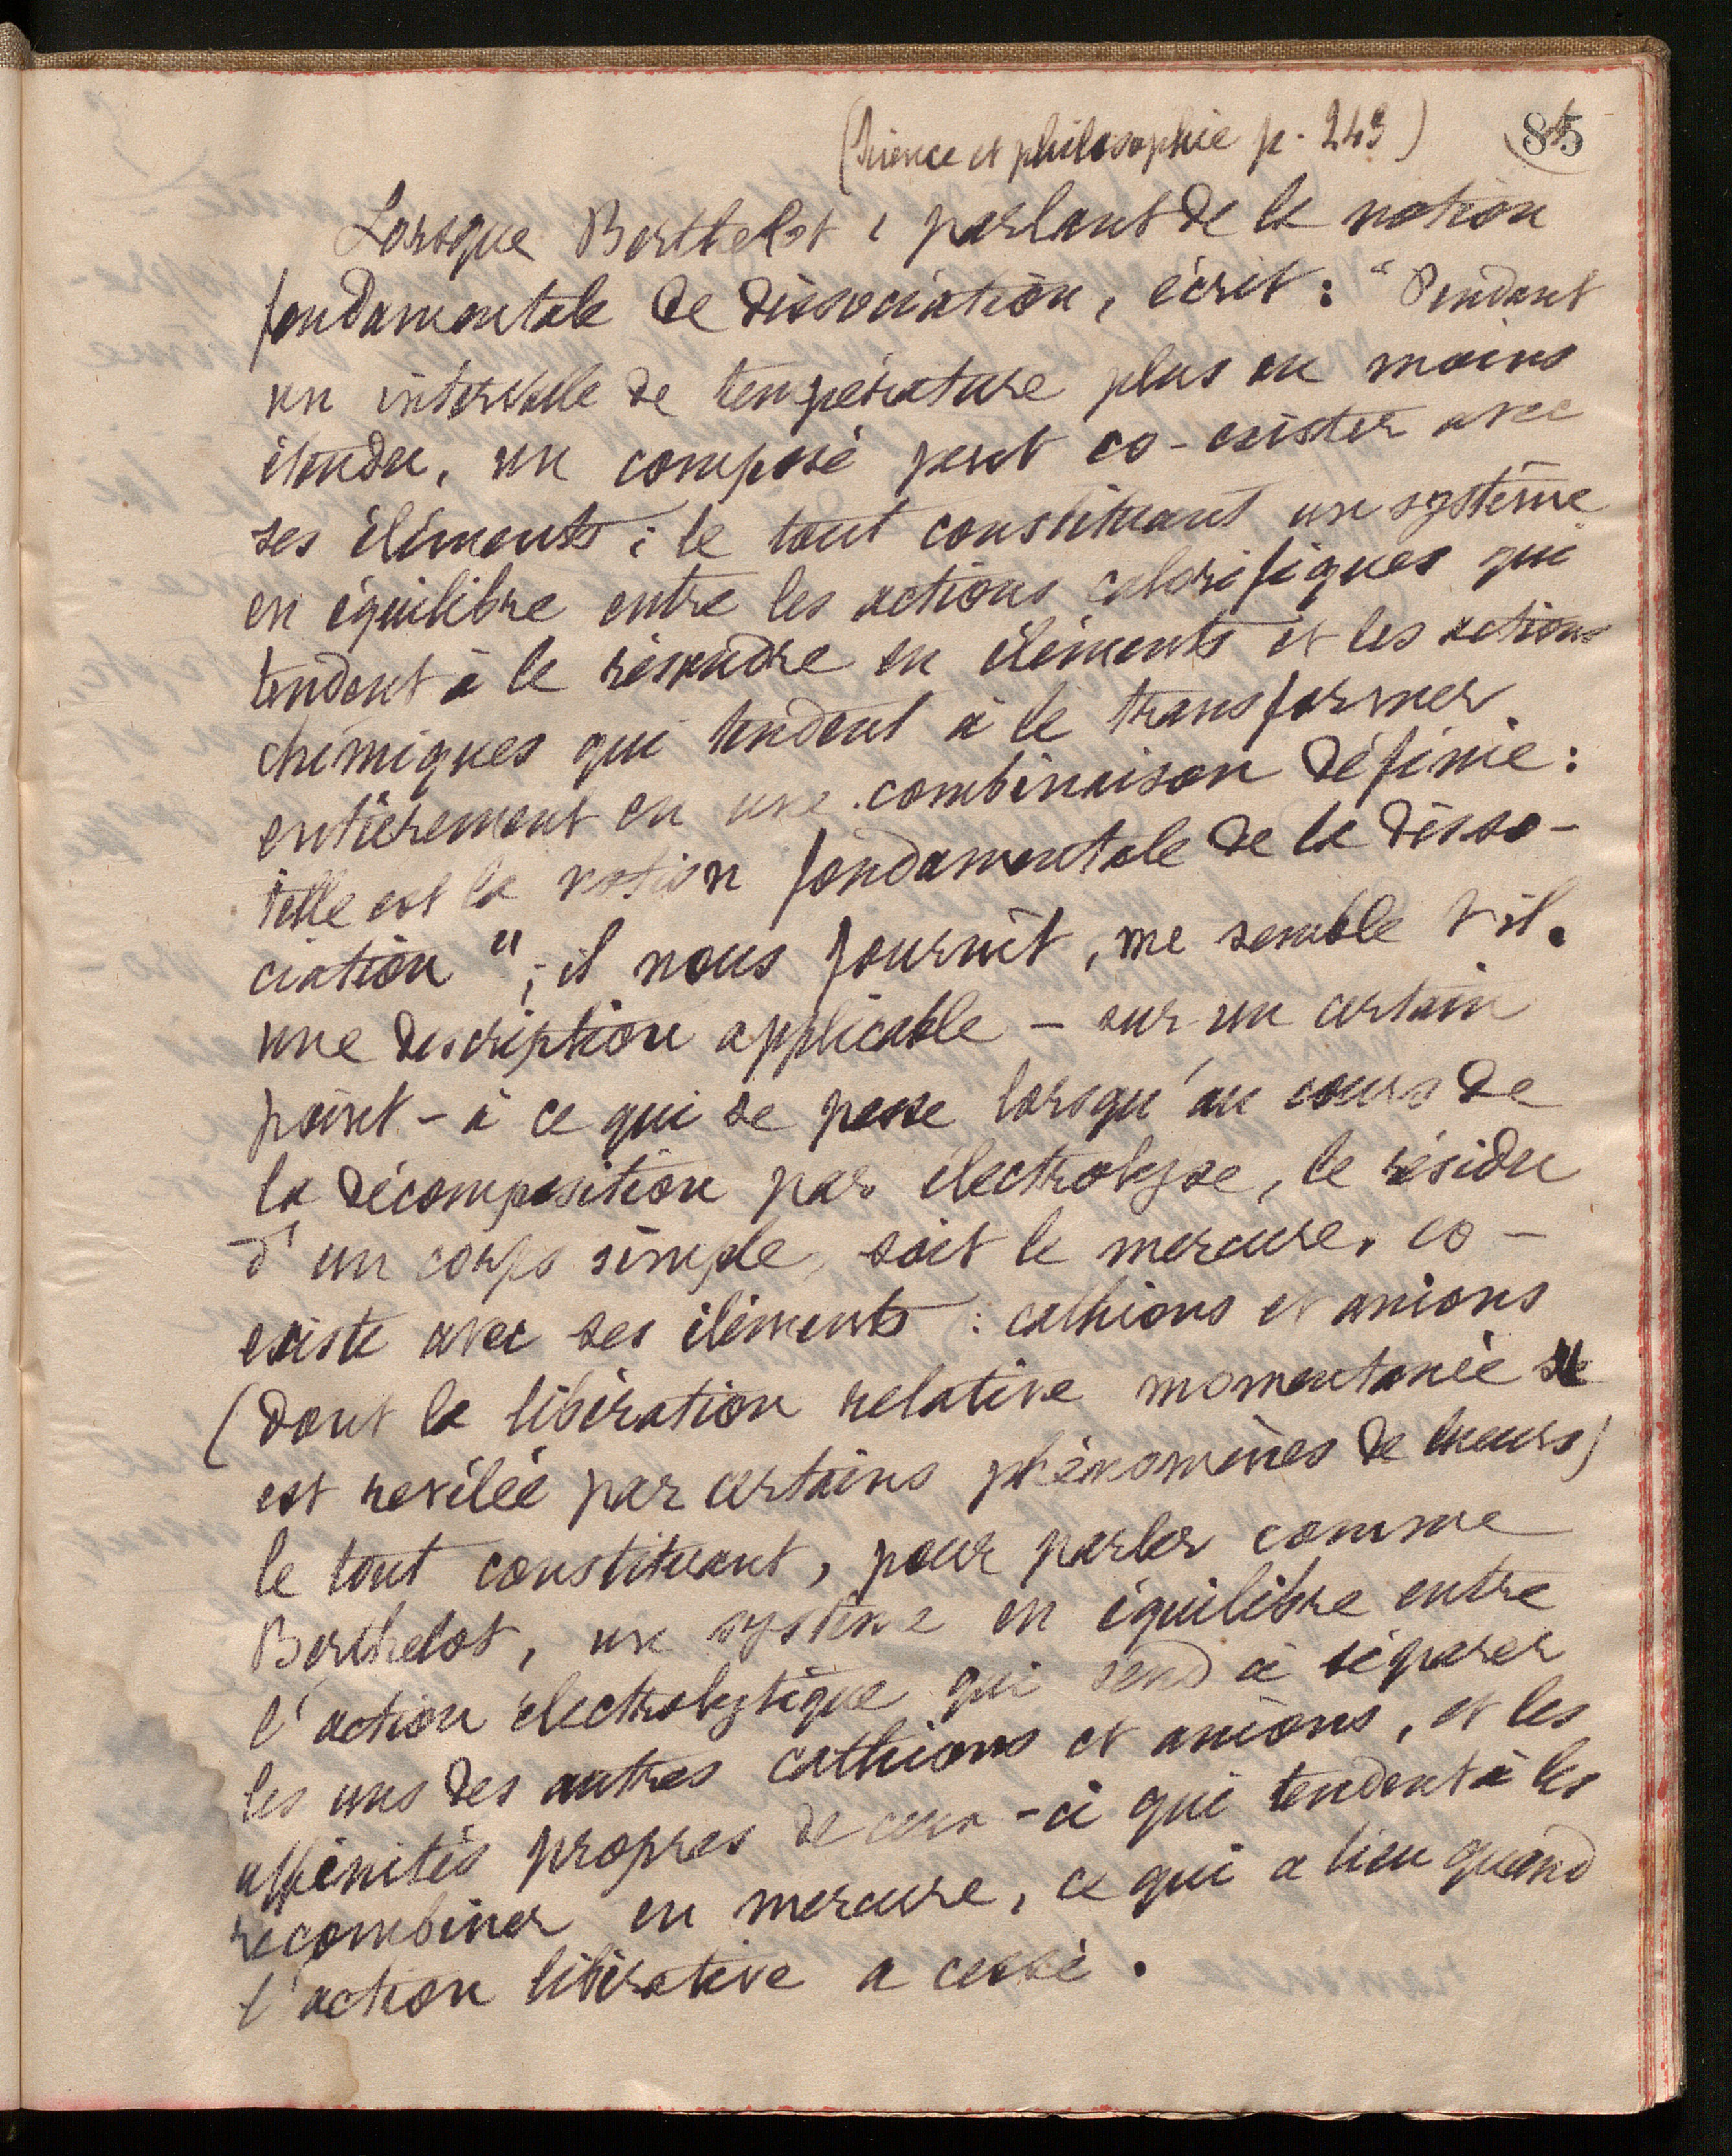 (Science et philosophie p. 243)
85
Lorsque Berthelot, parlant de la notion
fondamentale de dissociation, écrit : "Pendant
un intervalle de température plus ou moins
étendu, un composé peut co-exister avec
ses éléments ; le tout constituant un système
en équilibre entre les actions calorifiques qui
tendent à le résoudre en éléments et les actions
chimiques qui tendent à le transformer
entièrement en une combinaison définie :
telle est la notion fondamentale de la disso-
ciation" ; il nous fournit, me semble t-il.
une description applicable - sur un certain
point - à ce qui se passe lorsqu'au cours de
la décomposition par électrolyse, le résidu
d'un corps simple, soit le mercure, co-
existe avec ses éléments : cathions et anions
(dont la libération relative momentanée
est révélée par certains phénomènes de lueurs)
le tout constituant, pour parler comme
Berthelot, un système en équilibre entre
l'action électrolytique qui tend à séparer
les uns des autres cathions et anions, et les
affinités propres de ceux-ci qui tendent à les
recombiner en mercure, ce qui a lieu quand
l'action libérative a cessé.